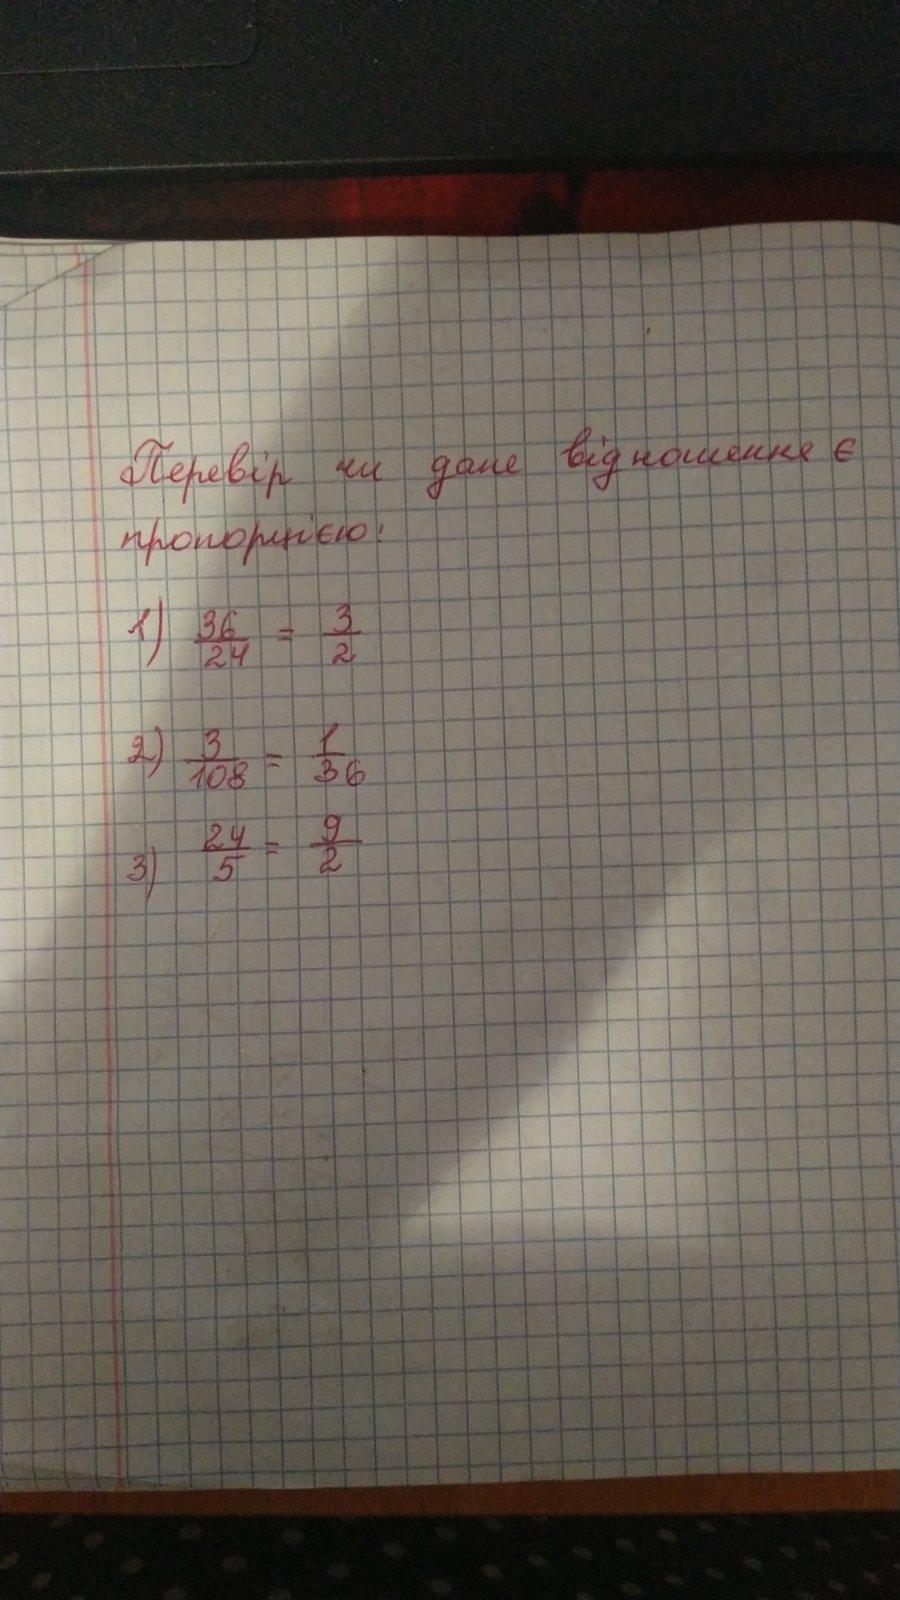 Перевір чи дане відношення є
пропорцією:
1) 36/24 = 3/2
2) 3/108 = 1/36
3) 24/5 = 9/2